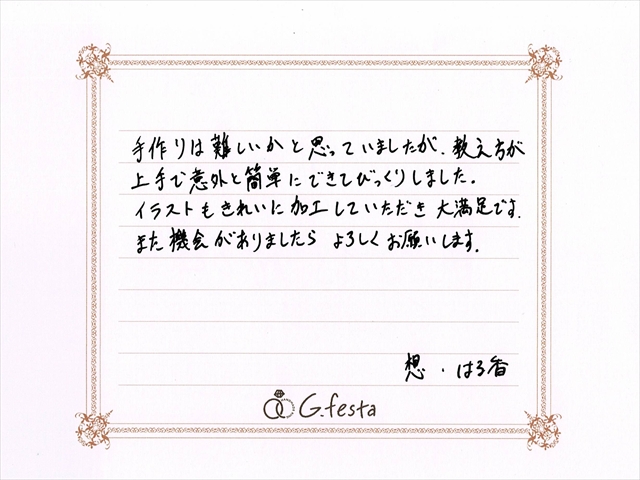 手作りは難しいかと思っていましたが、教え方が
上手で意外と簡単にできてびっくりしました。
イラストもきれいに加工していただき大満足です。
また機会がありましたらよろしくお願いします。
想・はる香
G.festa